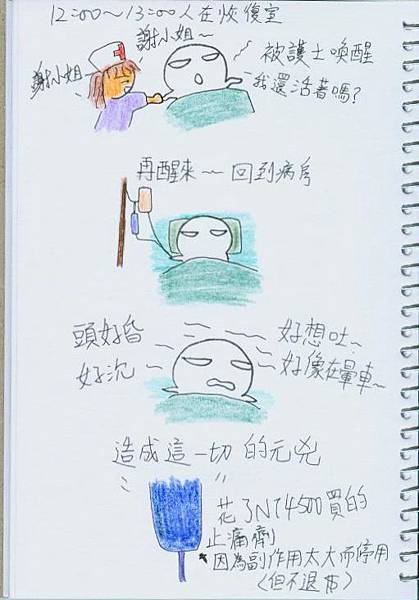 12:00～13:00人在恢復室
謝小姐～
謝小姐
被護士喚醒
我還活著嗎?
再醒來～回到病房
頭好昏
好沉
好想吐～
好像在暈車～
造成這一切的元兇
花了NT4500買的
止痛劑
*因為副作用太大而停用
(但不退費)